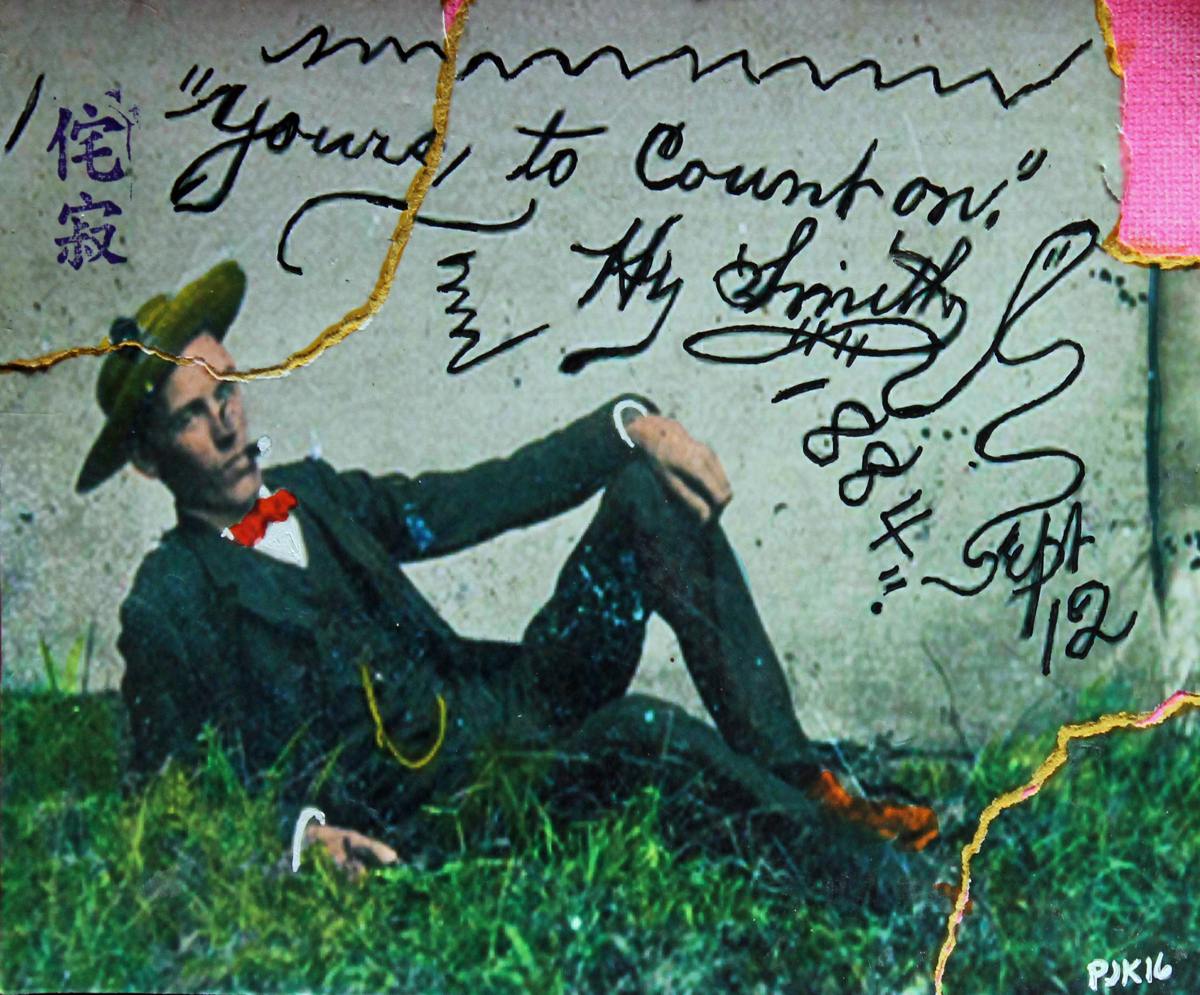 侘寂
"Yours, to Count on."
Hy Smith
- 884 =
Sept
12
PJK16